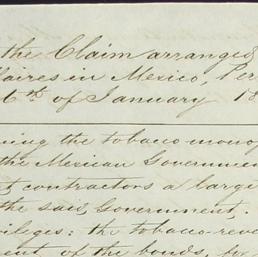 the Claim arranged
aires in Mexico, Per
6th of January 18
ing the tobacco monop
the Mexican Governmen
contractors a large
the said Government.
ileges: the tobacco-reve
ent of the bonds, for